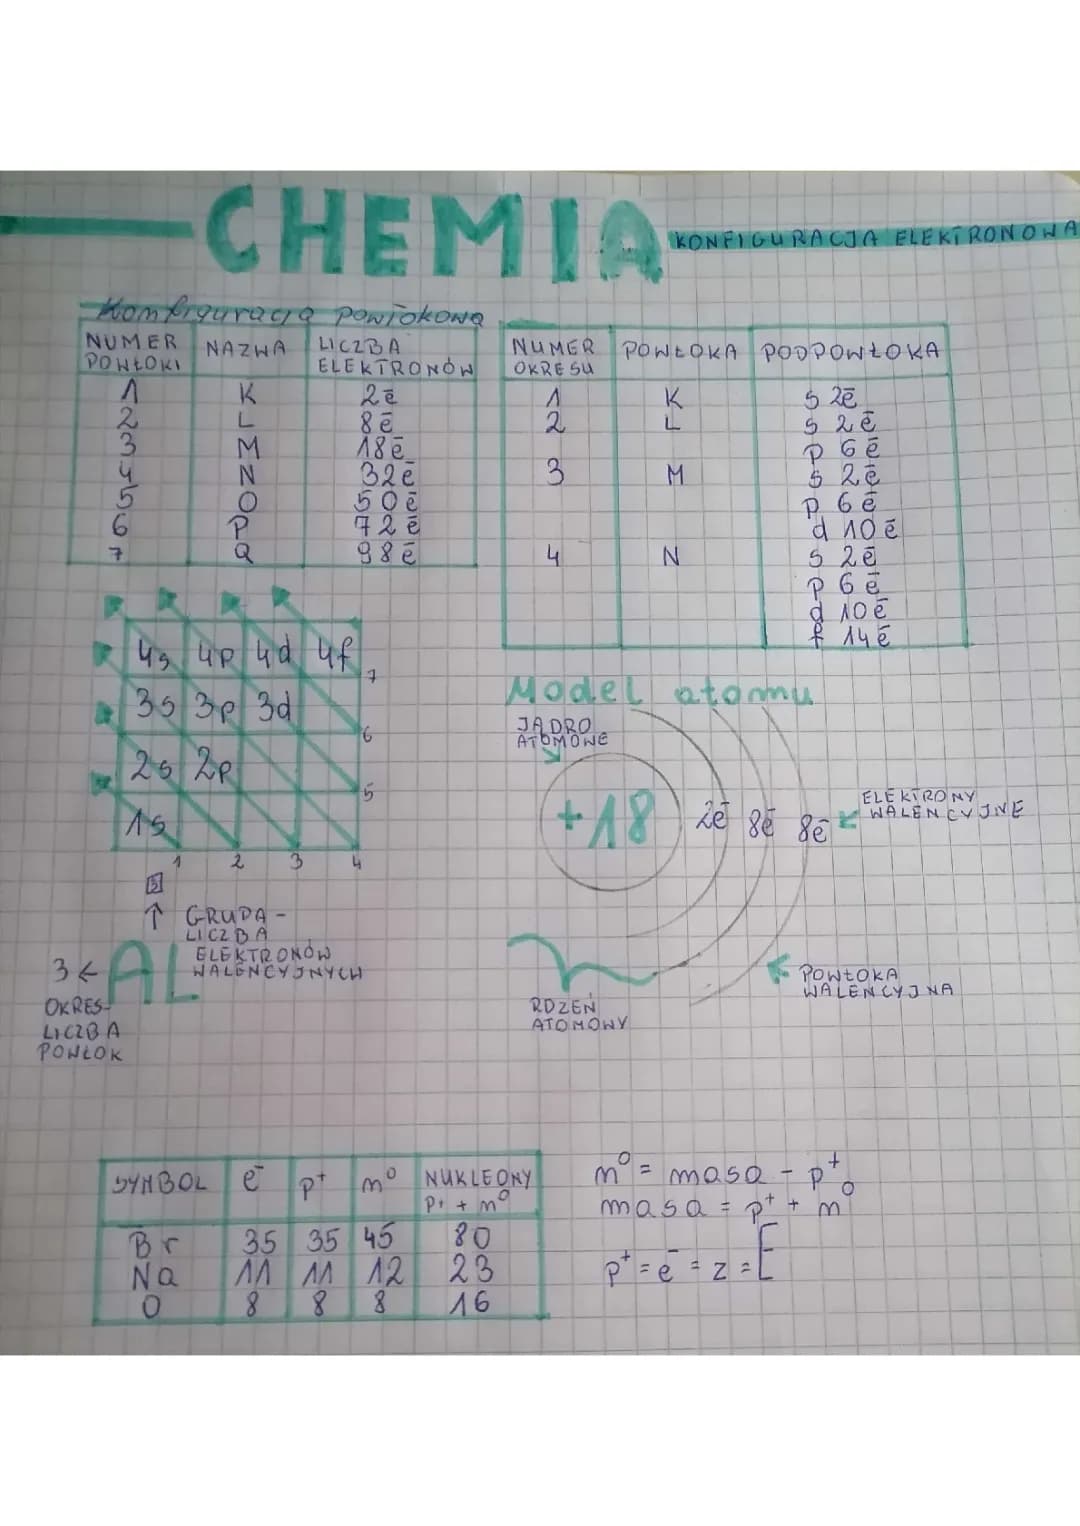 CHEMIA
KONFIGURACJA ELEKTRONOWA
Konfiguracja powłokowa
NUMER POWŁOKI NAZWA LICZBA ELEKTRONÓW
1 K 2ē
2 L 8ē
3 M 18ē
4 N 32ē
5 O 50ē
6 P 72ē
7 Q 98ē
NUMER OKRESU POWŁOKA PODPOWŁOKA
1 K s 2ē
2 L s 2ē
p 6ē
3 M s 2ē
p 6ē
d 10ē
4 N s 2ē
p 6ē
d 10ē
f 14ē
4s 4p 4d 4f
7
3s 3p 3d
6
2s 2p
5
1s
1 2 3 4
Model atomu
JĄDRO
ATOMOWE
+18 2ē 8ē 8ē
ELEKTRONY
WALENCYJNE
RDZEŃ
ATOMOWY
POWŁOKA
WALENCYJNA
GRUPA -
LICZBA
ELEKTRONÓW
WALENCYJNYCH
3 ← AL
OKRES-
LICZBA
POWŁOK
SYMBOL e⁻ p⁺ n⁰ NUKLEONY
p⁺ + n⁰
Br 35 35 45 80
Na 11 11 12 23
O 8 8 8 16
n⁰ = masa - p⁺
masa = p⁺ + n⁰
p⁺ = e⁻ = z = E